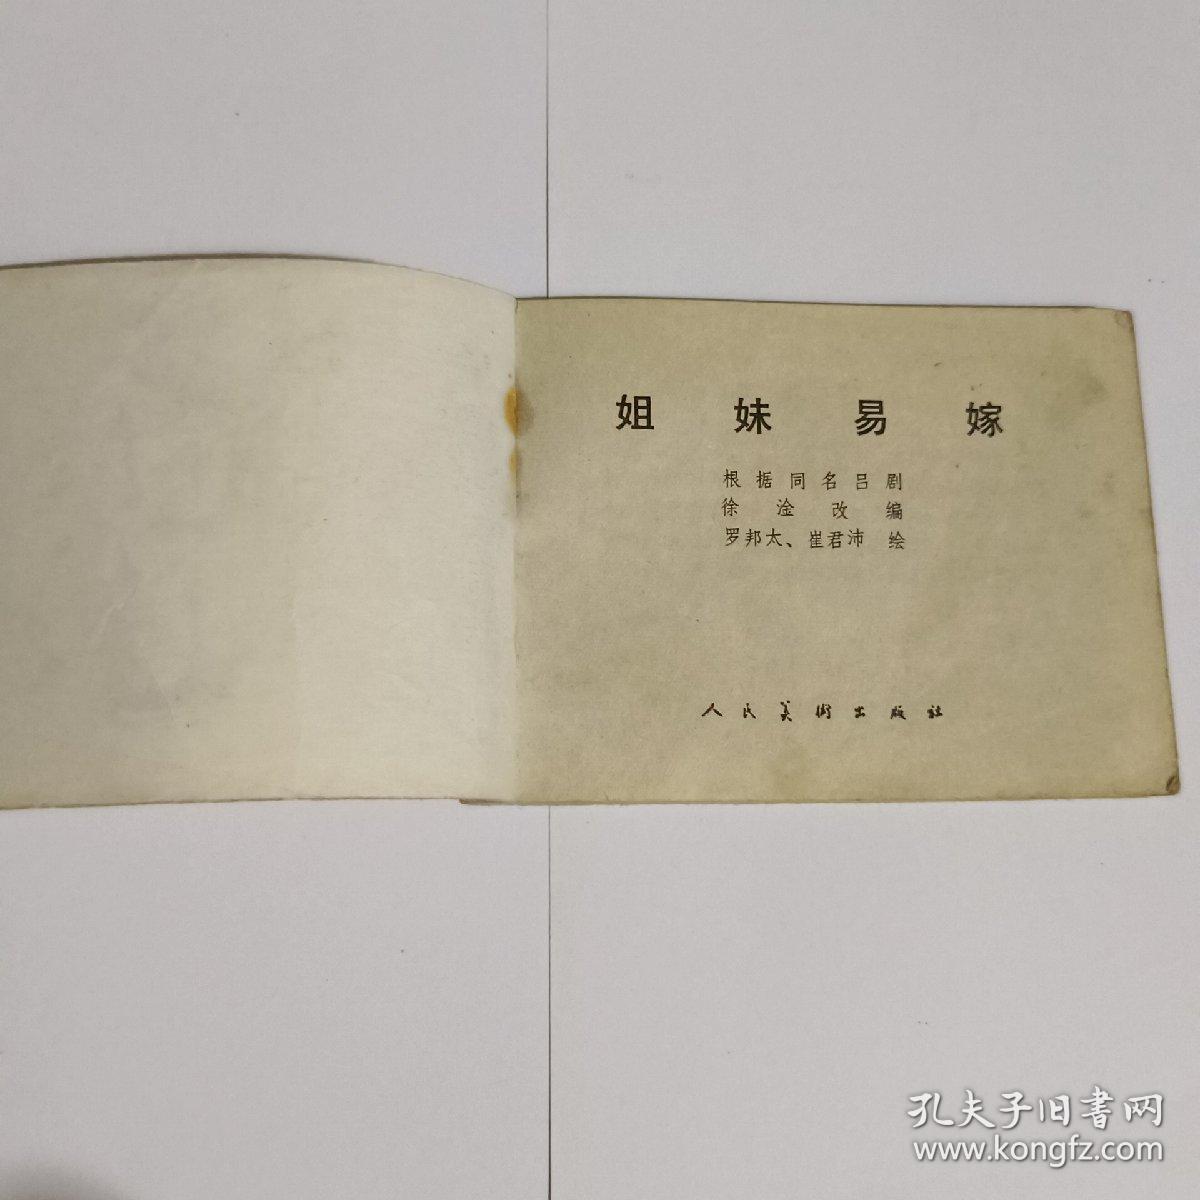 姐妹易嫁
根据同名吕剧
徐淦改编
罗邦太、崔君沛 绘
人民美术出版社
孔夫子旧书网
www.kongfz.com